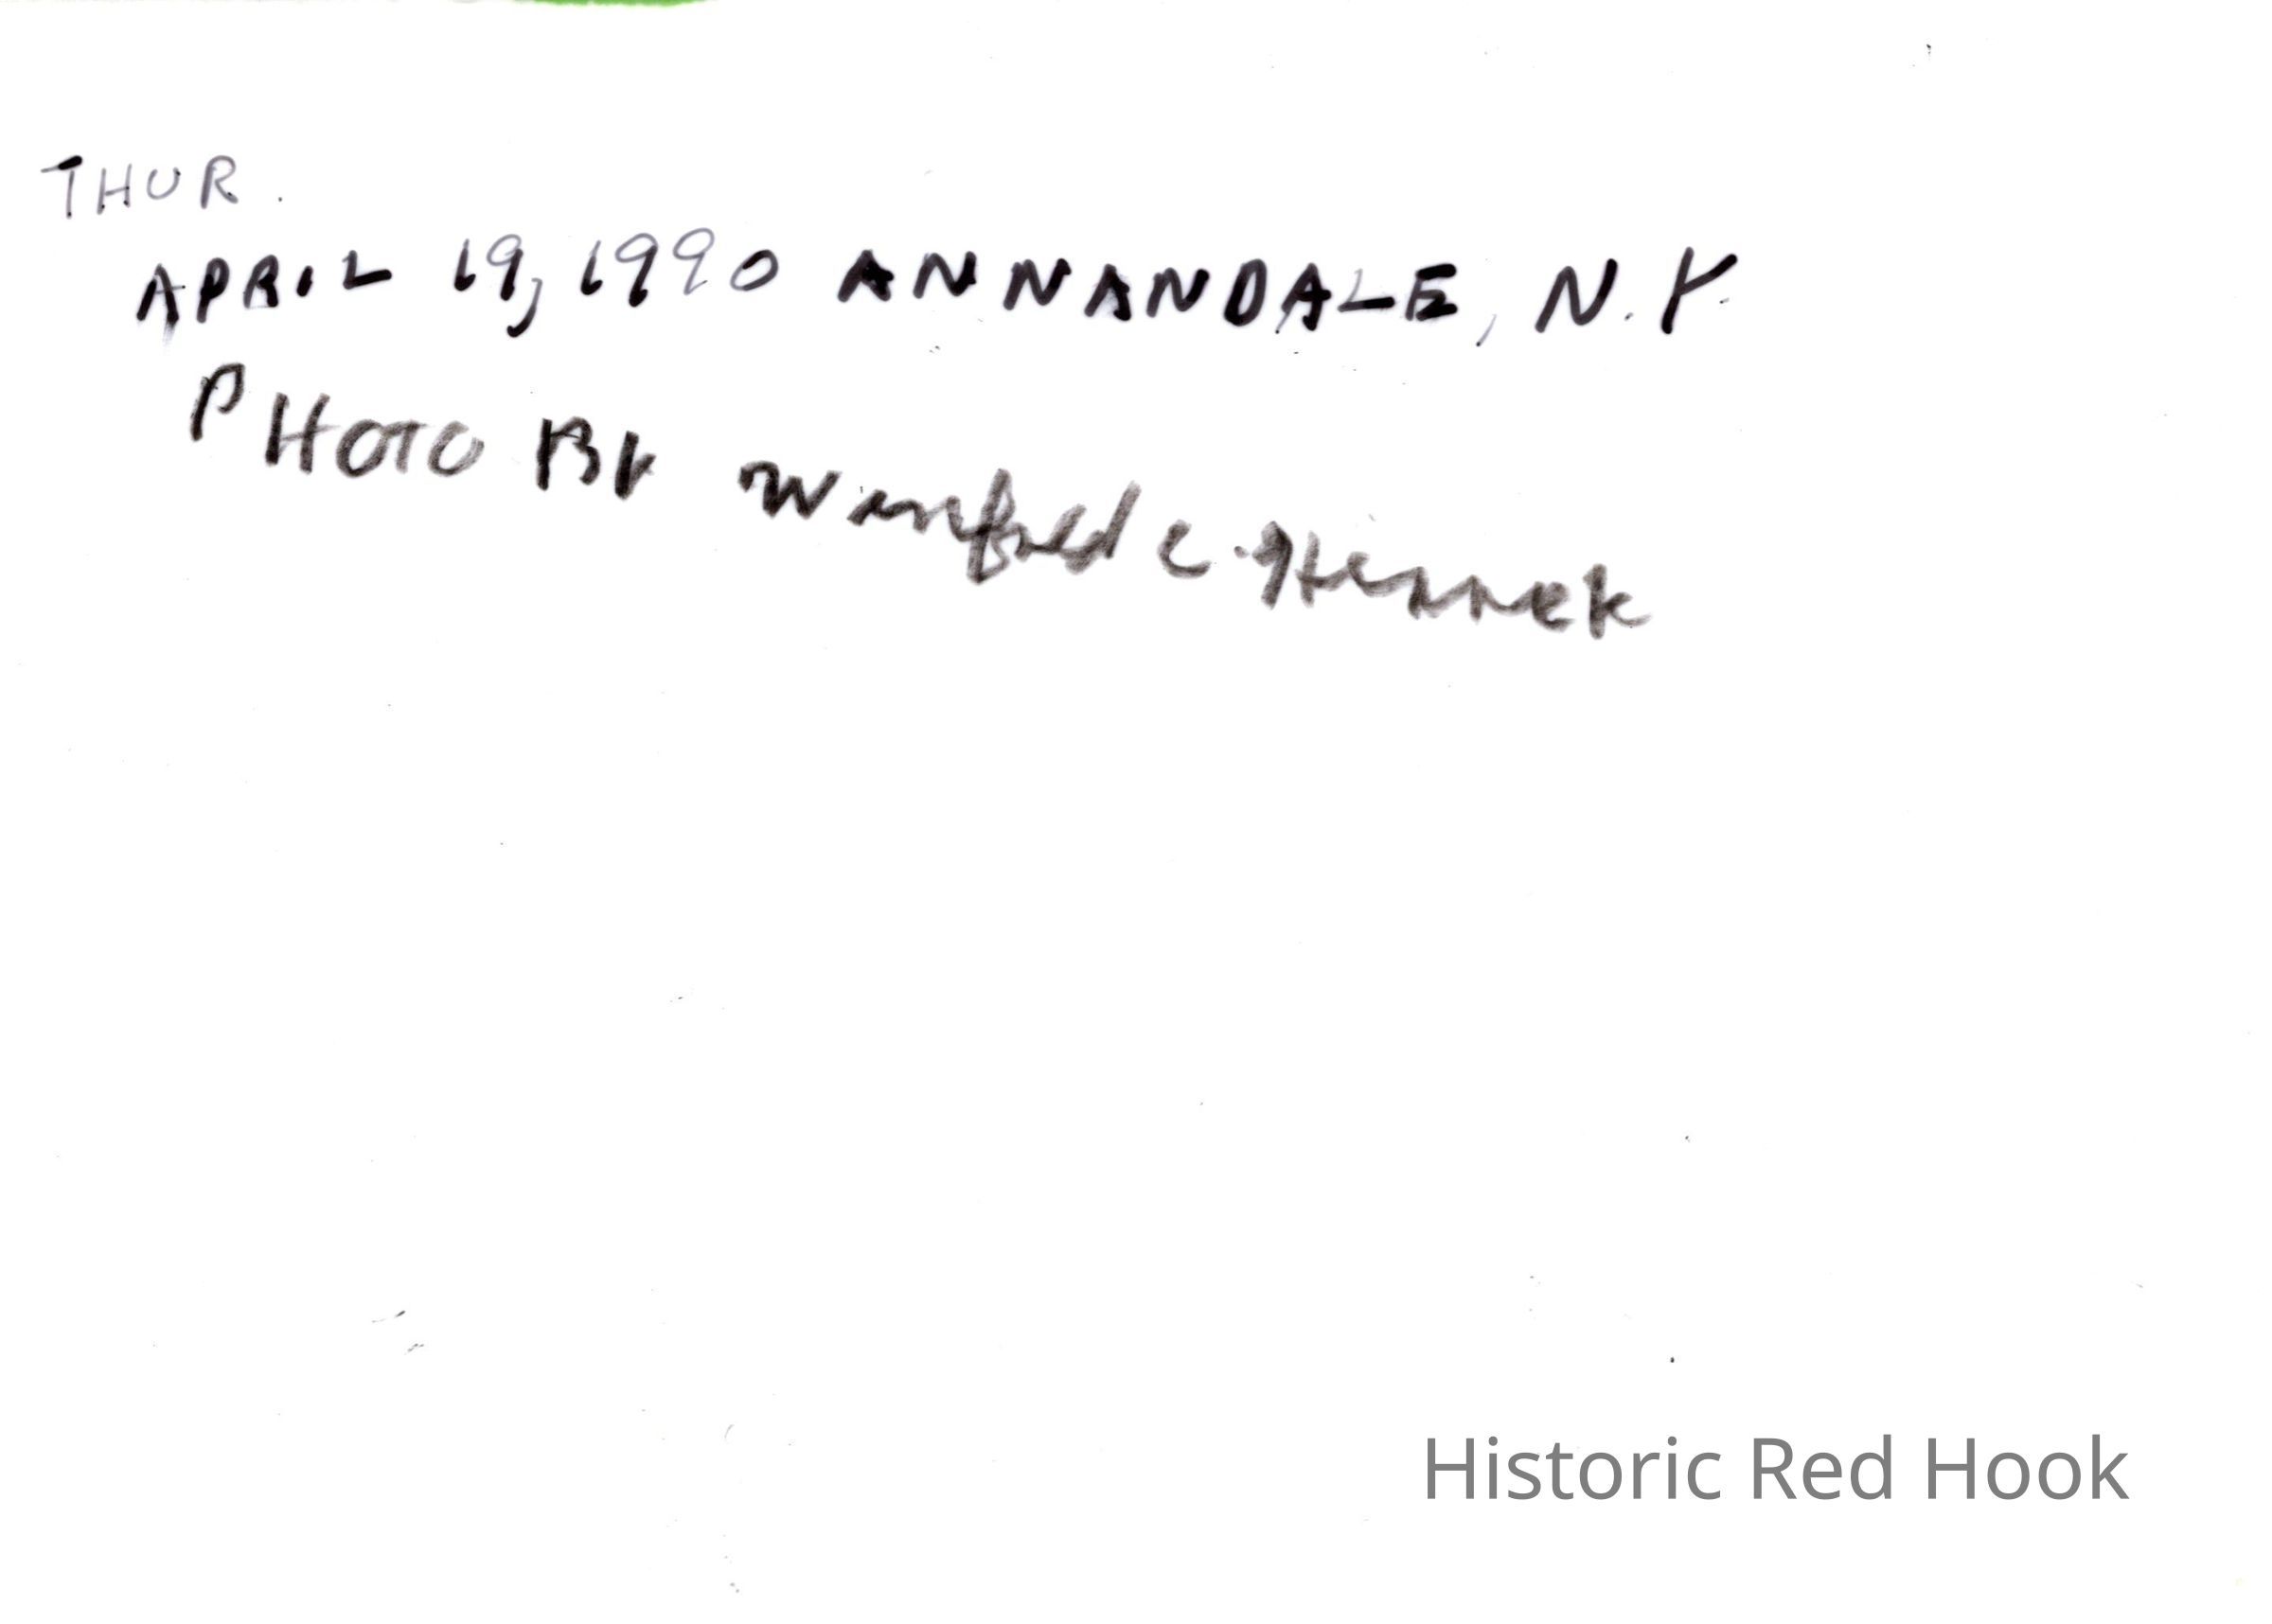 THUR.
APRIL 19, 1990 ANNANDALE, N.Y.
PHOTO BY Winfred C. Herrick
Historic Red Hook